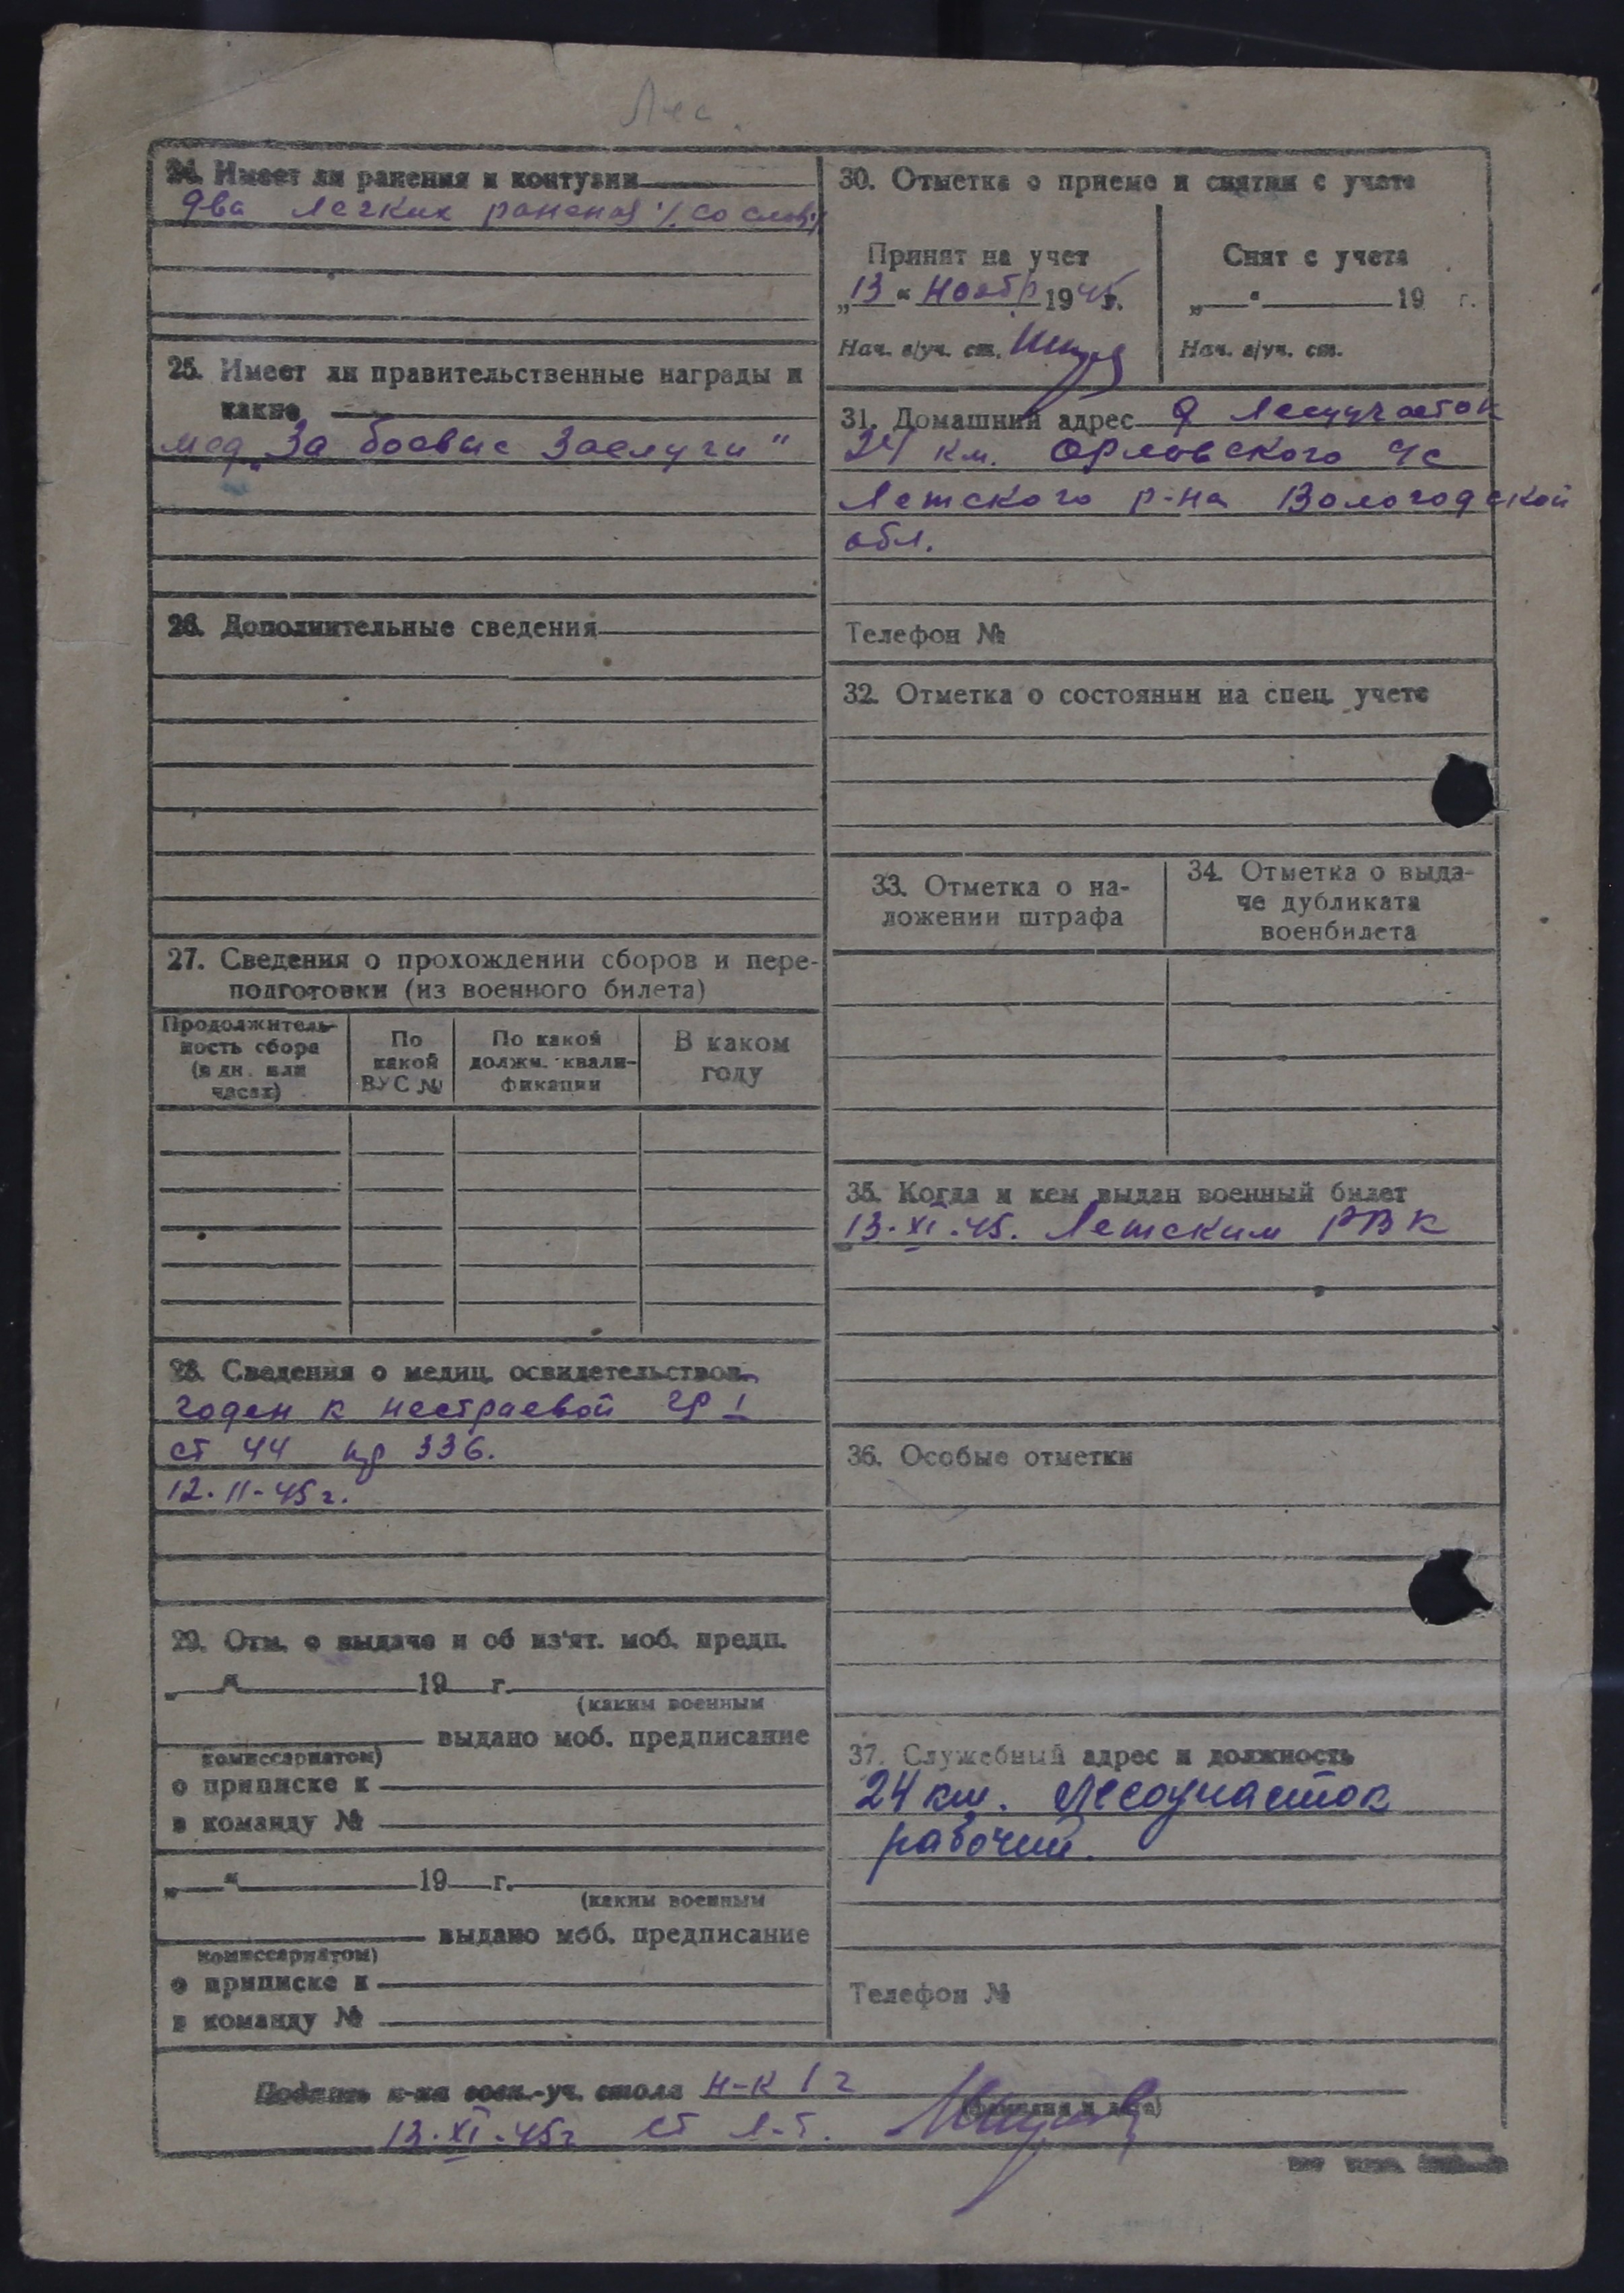 Лес.
24. Имеет ли ранения и контузии
два легких раненая /со слов/
25. Имеет ли правительственные награды и
какие
мед. „За боевые заслуги"
26. Дополнительные сведения
27. Сведения о прохождении сборов и пере-
подготовки (из военного билета)
Продолжитель-
ность сбора
(в дн. или
часах)
По
какой
ВУС №
По какой
должн. квали-
фикации
В каком
году
28. Сведения о медиц. освидетельствов.
годен к нестраевой гр I
ст 44 пр 336.
12.11-45г.
29. Отм. о выдаче и об из'ят. моб. предп.
„ “ 19 г.
(каким военным
выдано моб. предписание
комиссариатом)
о приписке к
в команду №
„ “ 19 г.
(каким военным
выдано моб. предписание
комиссариатом)
о приписке к
в команду №
30. Отметка о приеме и снятии с учета
Принят на учет
„13“ Ноябр 1945г.
Нач. в/уч. ст.
Снят с учета
„ “ 19 г.
Нач. в/уч. ст.
31. Домашний адрес д Лесуучасток
24 км. Орловского с
Летского р-на Вологодской
обл.
Телефон №
32. Отметка о состоянии на спец. учете
33. Отметка о на-
ложении штрафа
34. Отметка о выда-
че дубликата
военбилета
35. Когда и кем выдан военный билет
13.XI.45. Летским РВК
36. Особые отметки
37. Служебный адрес и должность
24 км. Лесоучасток
рабочий.
Телефон №
Подпись н-ка воен.-уч. стола Н-к 1 г
(фамилия и дата)
13.XI.45г ст л-т.